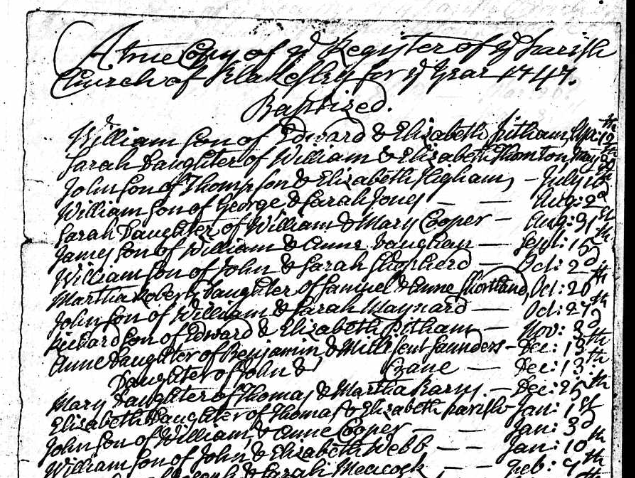 A true Copy of ye Register of ye Parish
Church of Blakesley for ye Year 1747.
Baptized.
William Son of Edward & Elizabeth Pitham, Apr: 19th
Sarah Daughter of William & Elizabeth Thornton, May
John Son of Thompson & Elizabeth Higham, - July
William Son of George & Sarah Jones - - Aug: 2d
Sarah Daughter of William & Mary Cooper - Aug: 9th
James Son of William & Anne Vaughan - Sept: 15th
William Son of John & Sarah Shepherd - Oct: 2d
Martha Daughter of Samuel & Anne Shortland, Oct: 26th
John Son of William & Sarah Maynard - Oct: 27th
Richard Son of Edward & Elizabeth Pitham - Nov: 8th
Anne Daughter of Benjamin & Millisent Saunders - Dec: 13th
Daughter of John & Crane - Dec: 13th
Mary Daughter of Thomas & Martha - Dec: 25th
Elizabeth Daughter of Thomas & Elizabeth Parish - Jan: 1st
John Son of William & Anne Cooper - - Jan: 3d
William Son of John & Elizabeth Webb - - Jan: 10th
Joseph & Sarah Meacock - - Feb: 7th